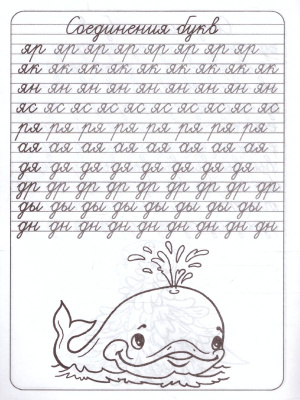 Соединения букв
яр яр яр яр яр яр яр яр
як як як як як як як як як
ян ян ян ян ян ян ян ян ян
яс яс яс яс яс яс яс яс яс яс
ря ря ря ря ря ря ря ря
ая ая ая ая ая ая ая ая
дя дя дя дя дя дя дя дя
др др др др др др др др др
ды ды ды ды ды ды ды ды
дн дн дн дн дн дн дн дн дн